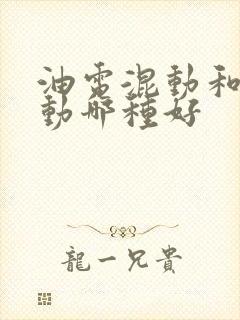 油電混動和
動哪種好
龍一兄貴